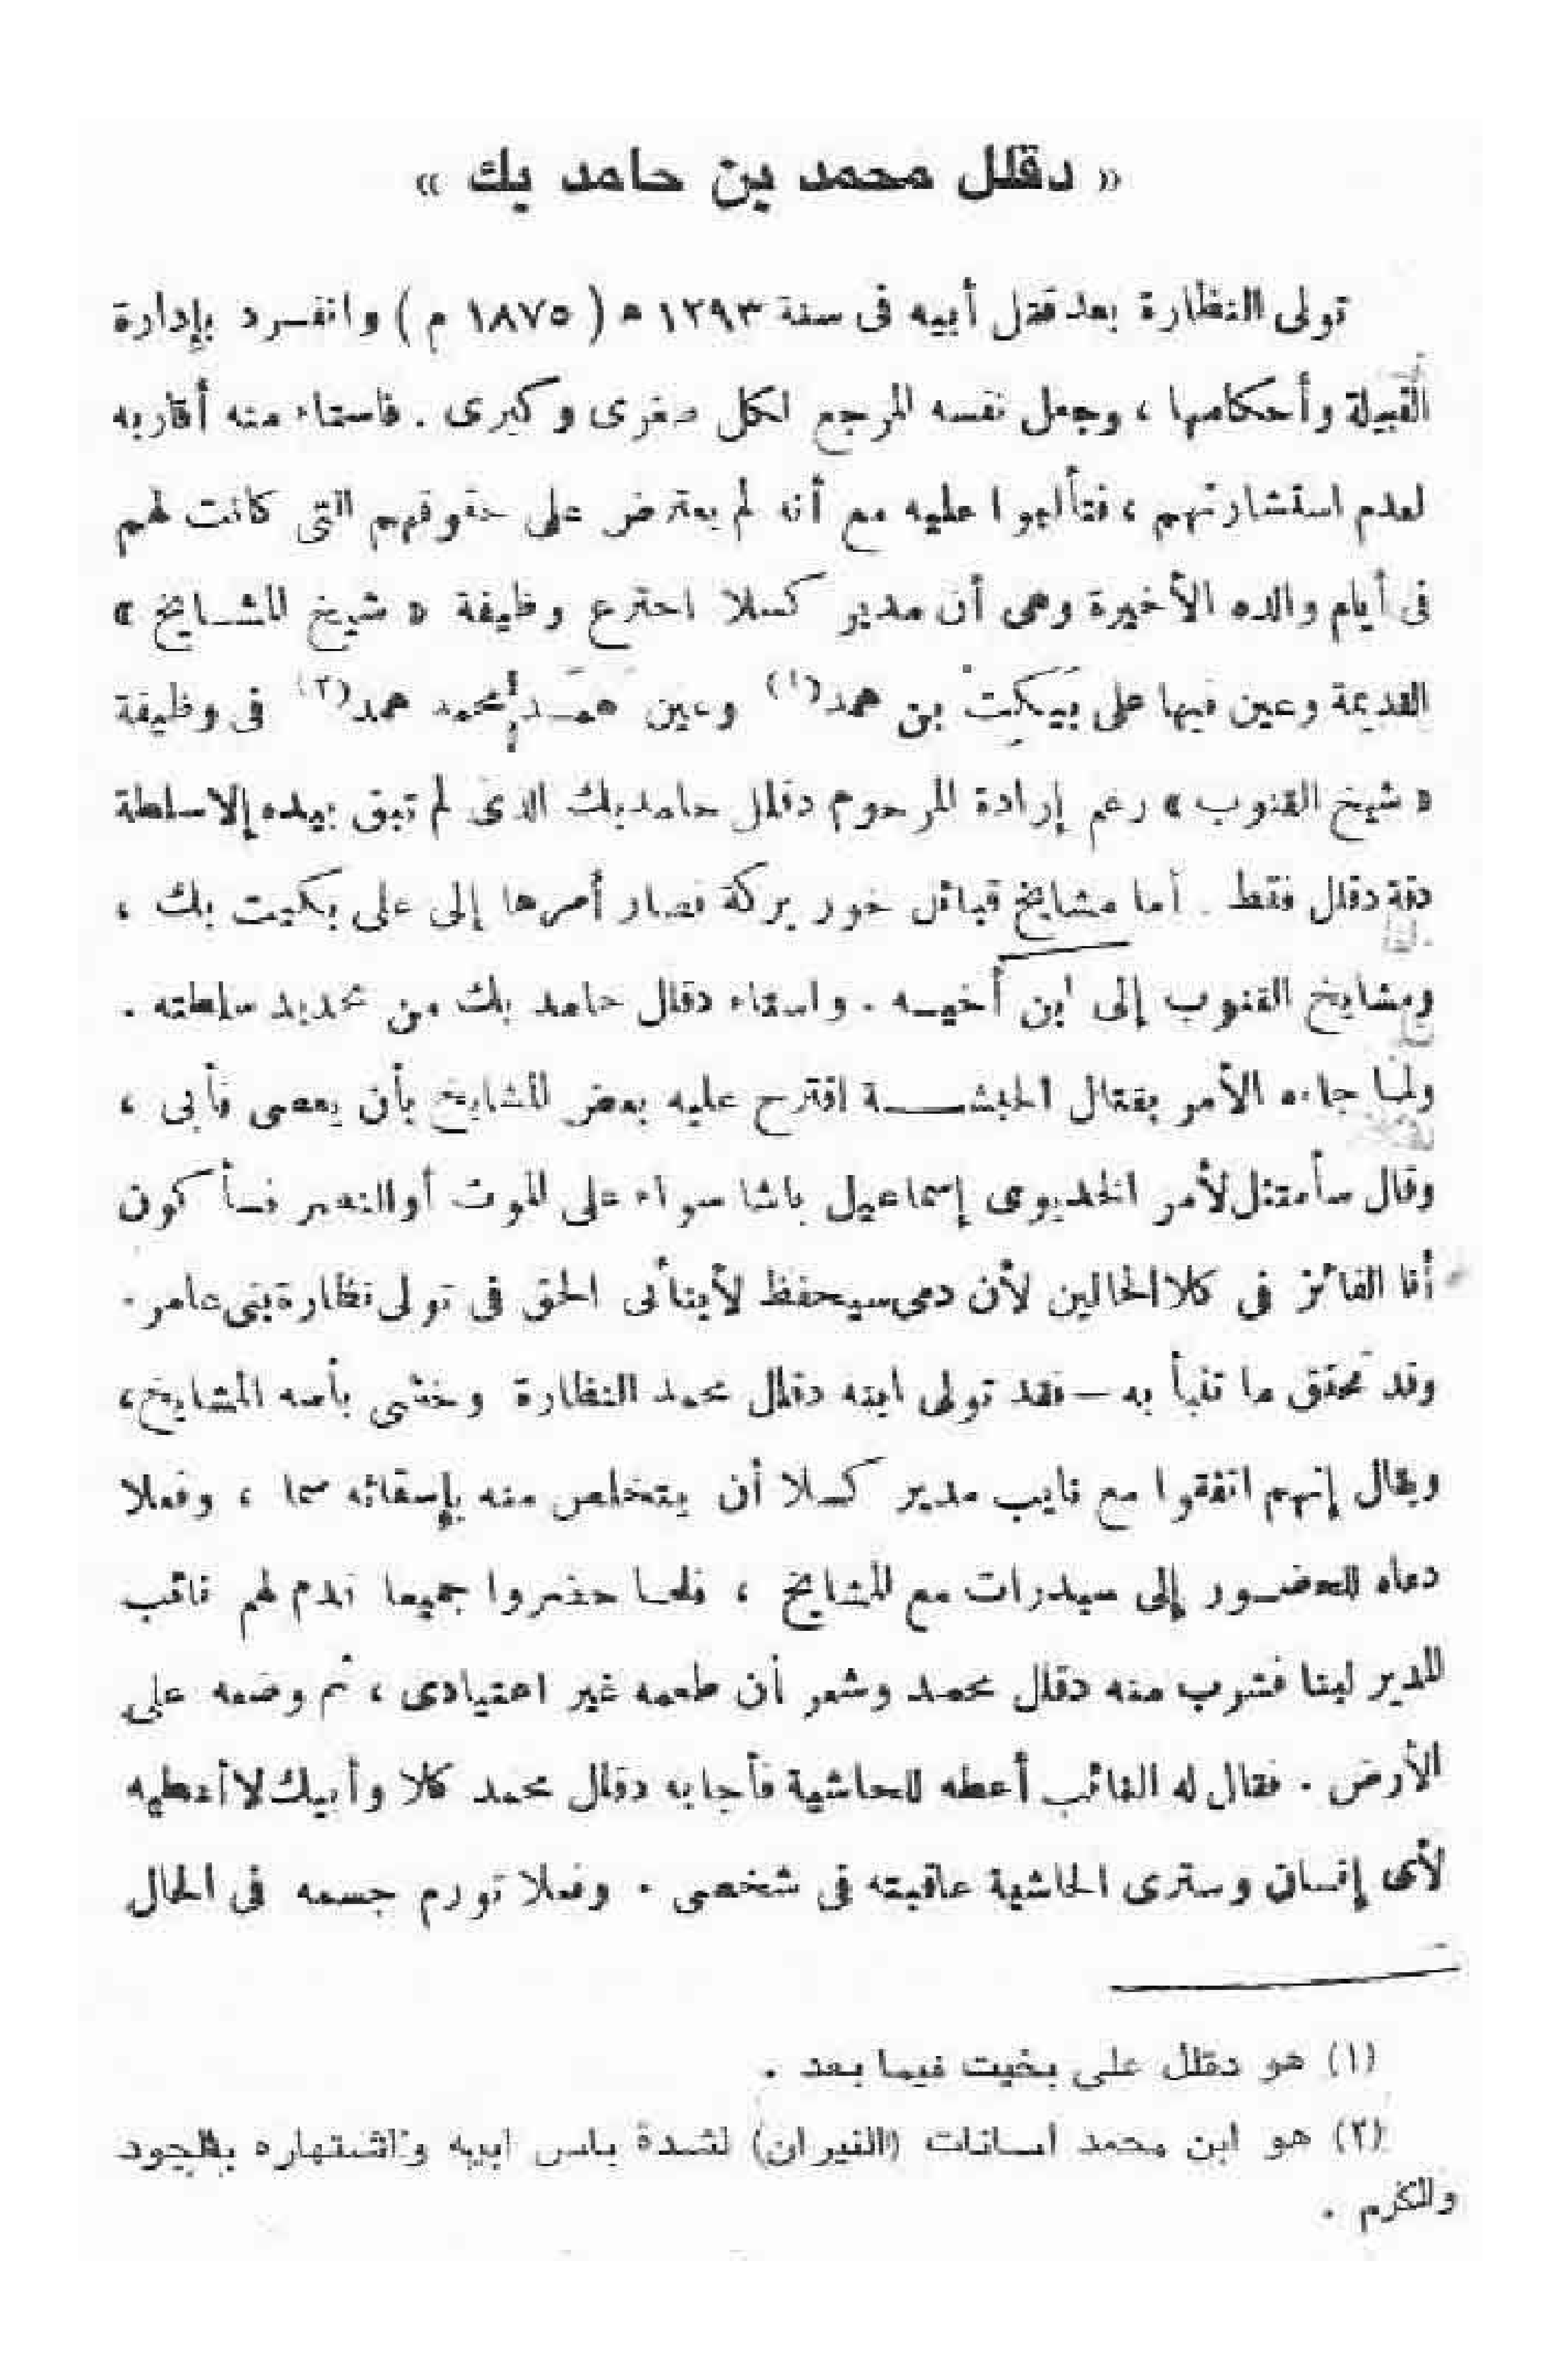 « دقلل محمد بن حامد بك »
تولى النظارة بعد قتل أبيه فى سنة ١٢٩٣ ه ( ١٨٧٥ م ) وانفرد بإدارة
القبيلة وأحكامها ، وجعل نفسه المرجع لكل صغرى وكبرى . فاستاء منه أقاربه
لعدم استشارتهم ، فتألبوا عليه مع أنه لم يعترض على حقوقهم التى كانت لهم
فى أيام والده الأخيرة وهى أن مدير كسلا اخترع وظيفة « شيخ المشايخ »
القديمة وعين فيها على بَيَكيتْ بن همد (١) وعين همَد محمد همد (٢) فى وظيفة
« شيخ القنوب » رغم إرادة المرحوم دقلل حامد بك الذى لم تبق بيده إلا سلطة
دقة دقلل فقط . أما مشايخ قبائل خور بركة فصار أمرها إلى على بكيت بك ،
ومشايخ القنوب إلى ابن أخيه . واستاء دقلل حامد بك من تحديد سلطته .
ولما جاءه الأمر بقتال الحبشة اقترح عليه بعض المشايخ بأن يعصى فأبى ،
وقال سأمتثل لأمر الخديوى إسماعيل باشا سواء على الموت أو النصر فسأكون
أنا الفائز فى كلا الحالين لأن دمى سيحفظ لأبنائى الحق فى تولى نظارة بنى عامر .
وقد تحقق ما تنبأ به — فقد تولى ابنه دقلل محمد النظارة وخشى بأسه المشايخ ،
ويقال إنهم اتفقوا مع نايب مدير كسلا أن يتخلص منه بإسقائه سما ، وفعلا
دعاه للحضور إلى سيدرات مع المشايخ ، فلما حضروا جميعا قدم لهم نائب
المدير لبنا فشرب منه دقلل محمد وشعر أن طعمه غير اعتيادى ، ثم وضعه على
الأرض . فقال له النائب أعطه للحاشية فأجابه دقلل محمد كلا وأبيك لا أعطيه
لأى إنسان وسترى الحاشية عاقبته فى شخصى . وفعلا تورم جسمه فى الحال
(١) هو دقلل على بخيت فيما بعد .
(٢) هو ابن محمد اسانات (النيران) لشدة باس ابيه واشتهاره بالجود
والكرم .